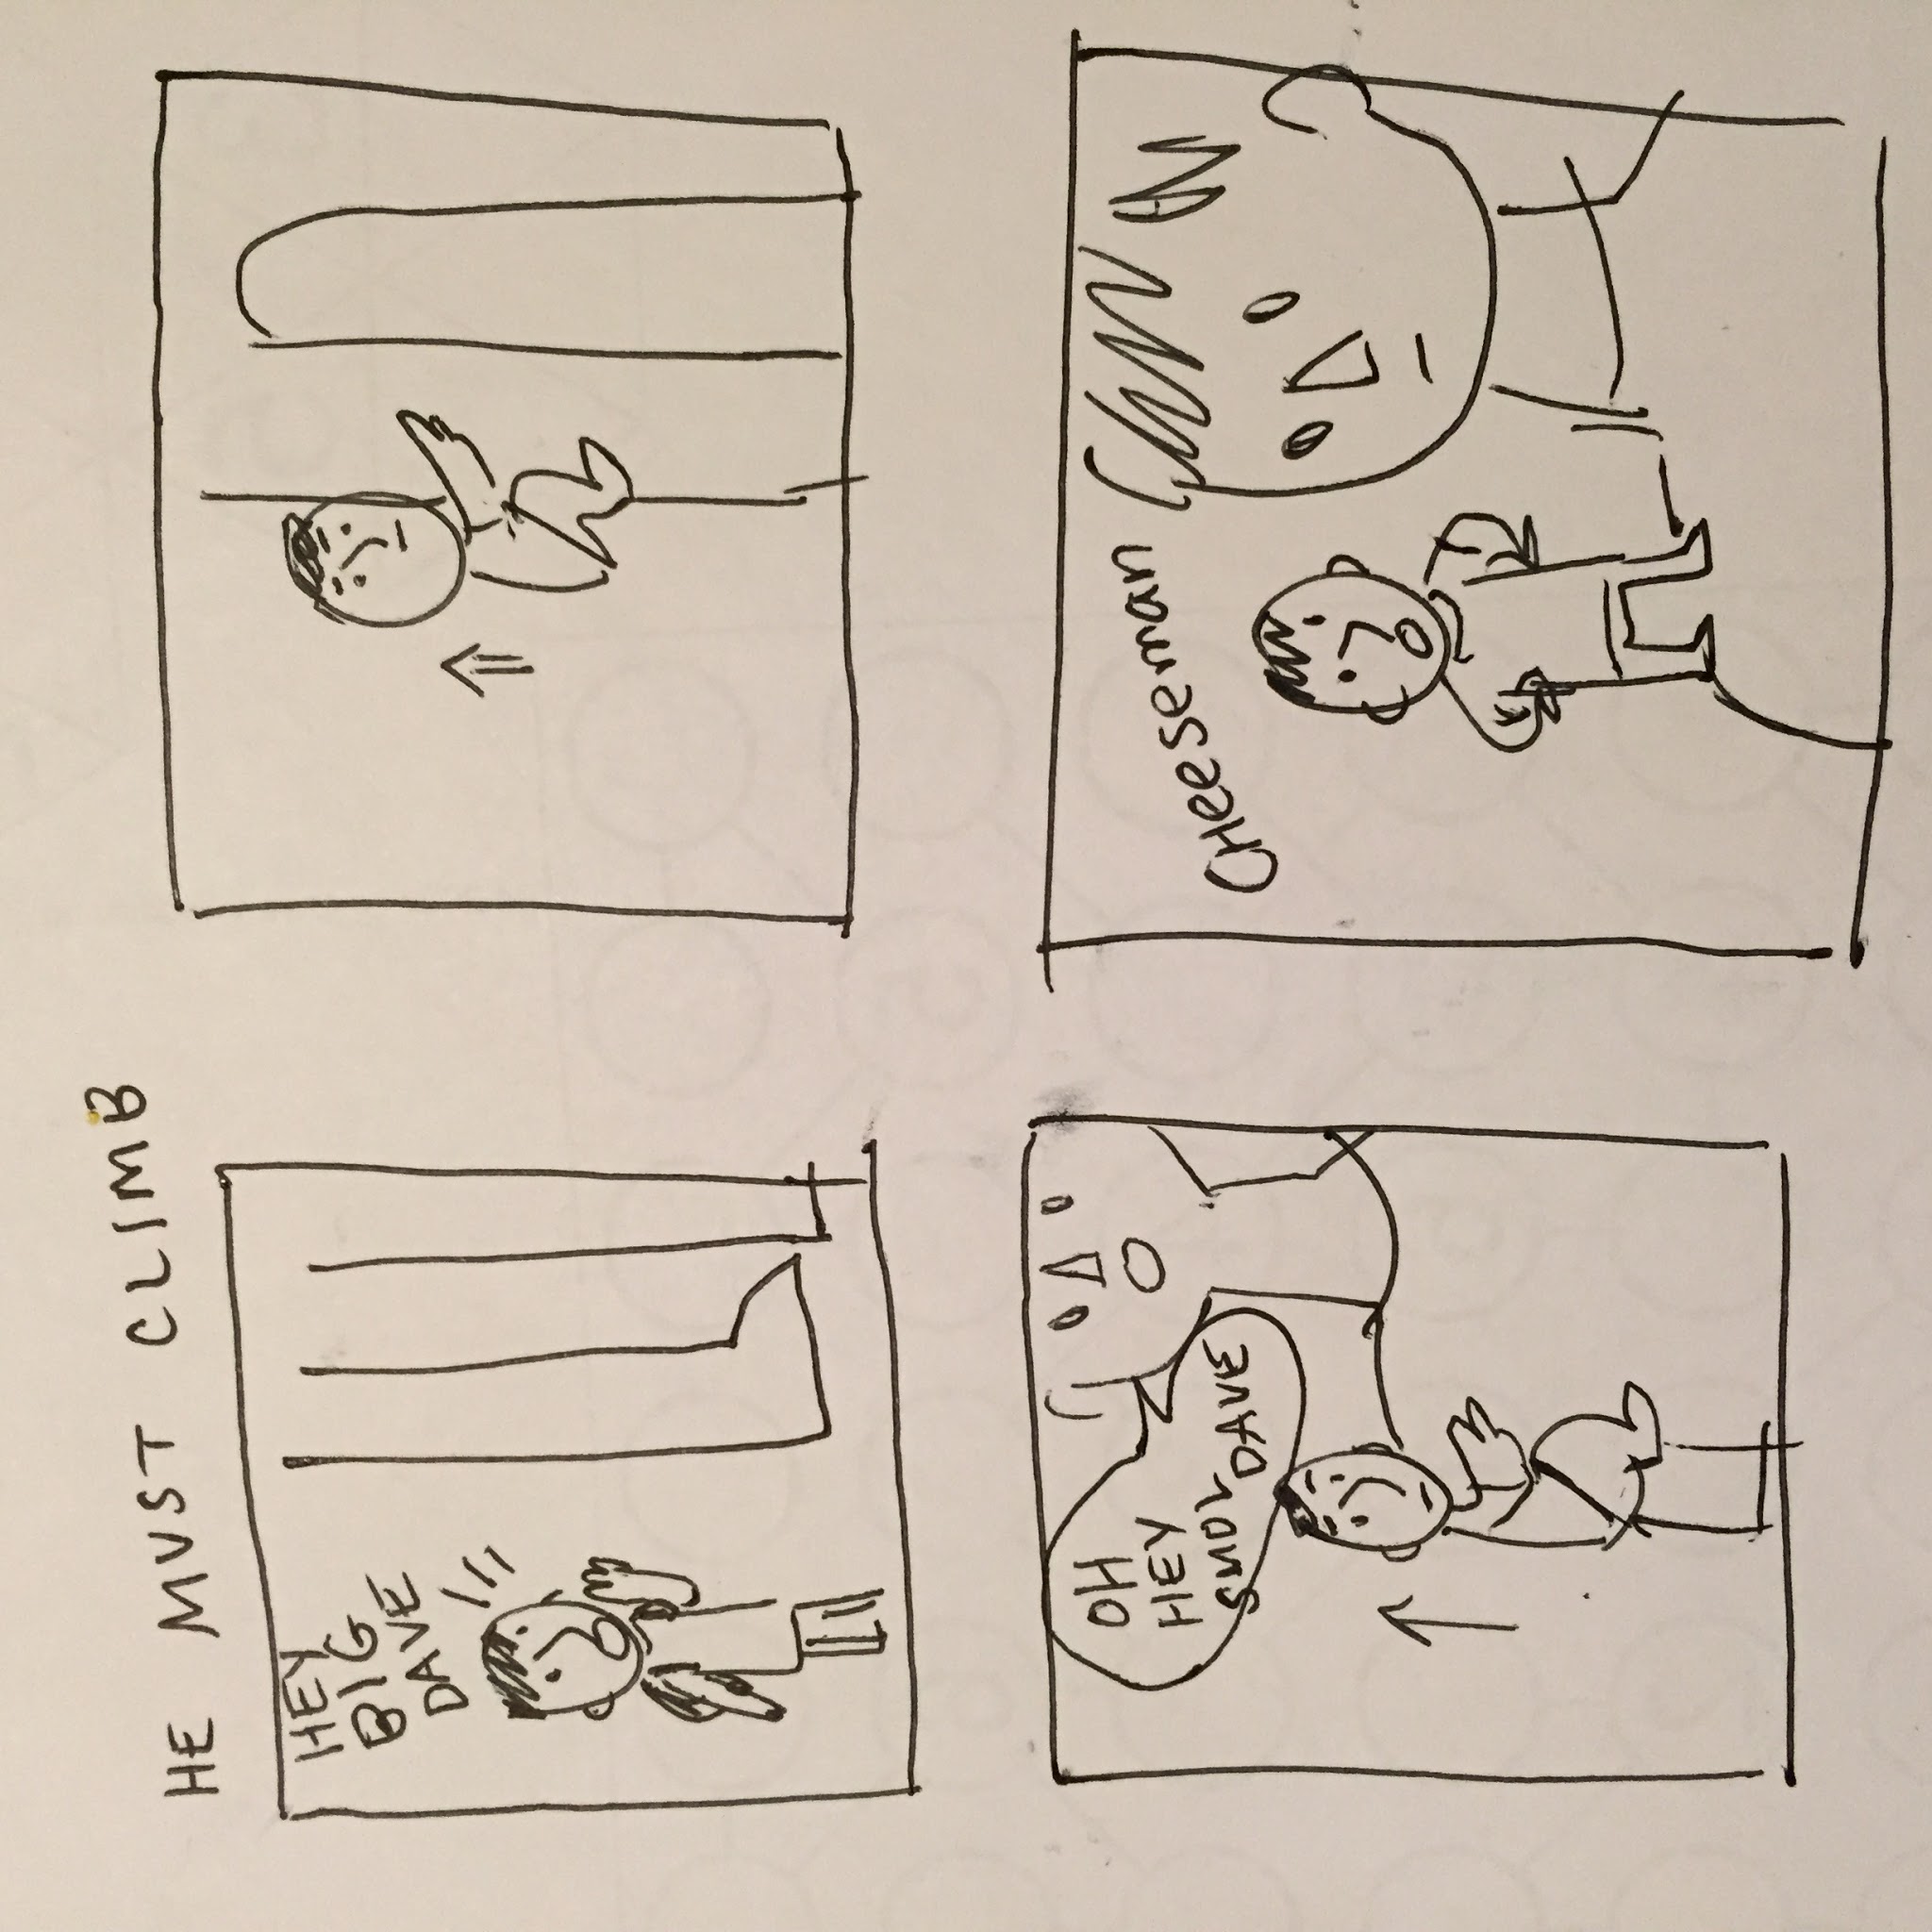 HE MUST CLIMB
HEY
BIG
DAVE
OH
HEY
SMOL DAVE
CHeeseman